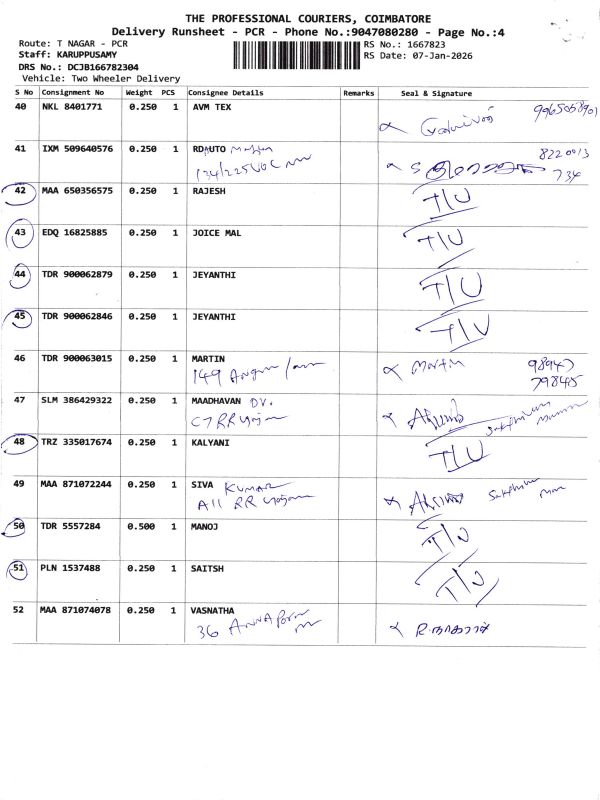 THE PROFESSIONAL COURIERS, COIMBATORE
Delivery Runsheet - PCR - Phone No.:9047080280 - Page No.:4
Route: T NAGAR - PCR
Staff: KARUPPUSAMY
DRS No.: DCJB166782304
Vehicle: Two Wheeler Delivery
RS No.: 1667823
RS Date: 07-Jan-2026
S No Consignment No Weight PCS Consignee Details Remarks Seal & Signature
40 NKL 8401771 0.250 1 AVM TEX
41 IXM 509640576 0.250 1 RDAUTO
8220013
734
42 MAA 650356575 0.250 1 RAJESH T/U
43 EDQ 16825885 0.250 1 JOICE MAL T/U
44 TDR 900062879 0.250 1 JEYANTHI T/U
45 TDR 900062846 0.250 1 JEYANTHI T/U
46 TDR 900063015 0.250 1 MARTIN Martin 98947
149 79845
47 SLM 386429322 0.250 1 MAADHAVAN DV.
C7 RR
48 TRZ 335017674 0.250 1 KALYANI T/U
49 MAA 871072244 0.250 1 SIVA KUMAR
A11 RR
50 TDR 5557284 0.500 1 MANOJ T/U
51 PLN 1537488 0.250 1 SAITSH T/U
52 MAA 871074078 0.250 1 VASNATHA
36